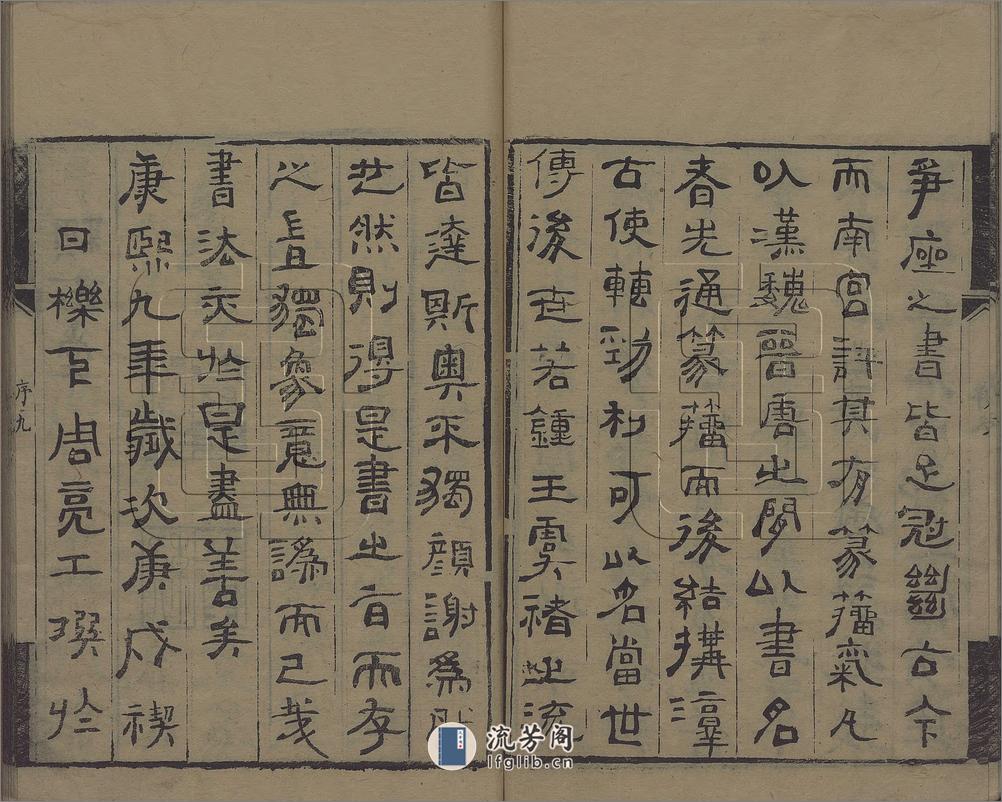 爭座之書皆足冠𢆶古今
而南宮評其有篆籀氣凡
以漢魏晉唐之間以書名
者先通篆籀而後結搆淳
古使轉勁和可以名當世
傳後世若鍾王虞褚之流
皆達斯奧不獨顏謝為
然則得是書之旨而存
之豈獨象意無譌而已哉
書法亦於是盡善矣
康熙九年歲次庚戌禊
日櫟下周亮工撰於
序九
流芳阁
lfglib.cn